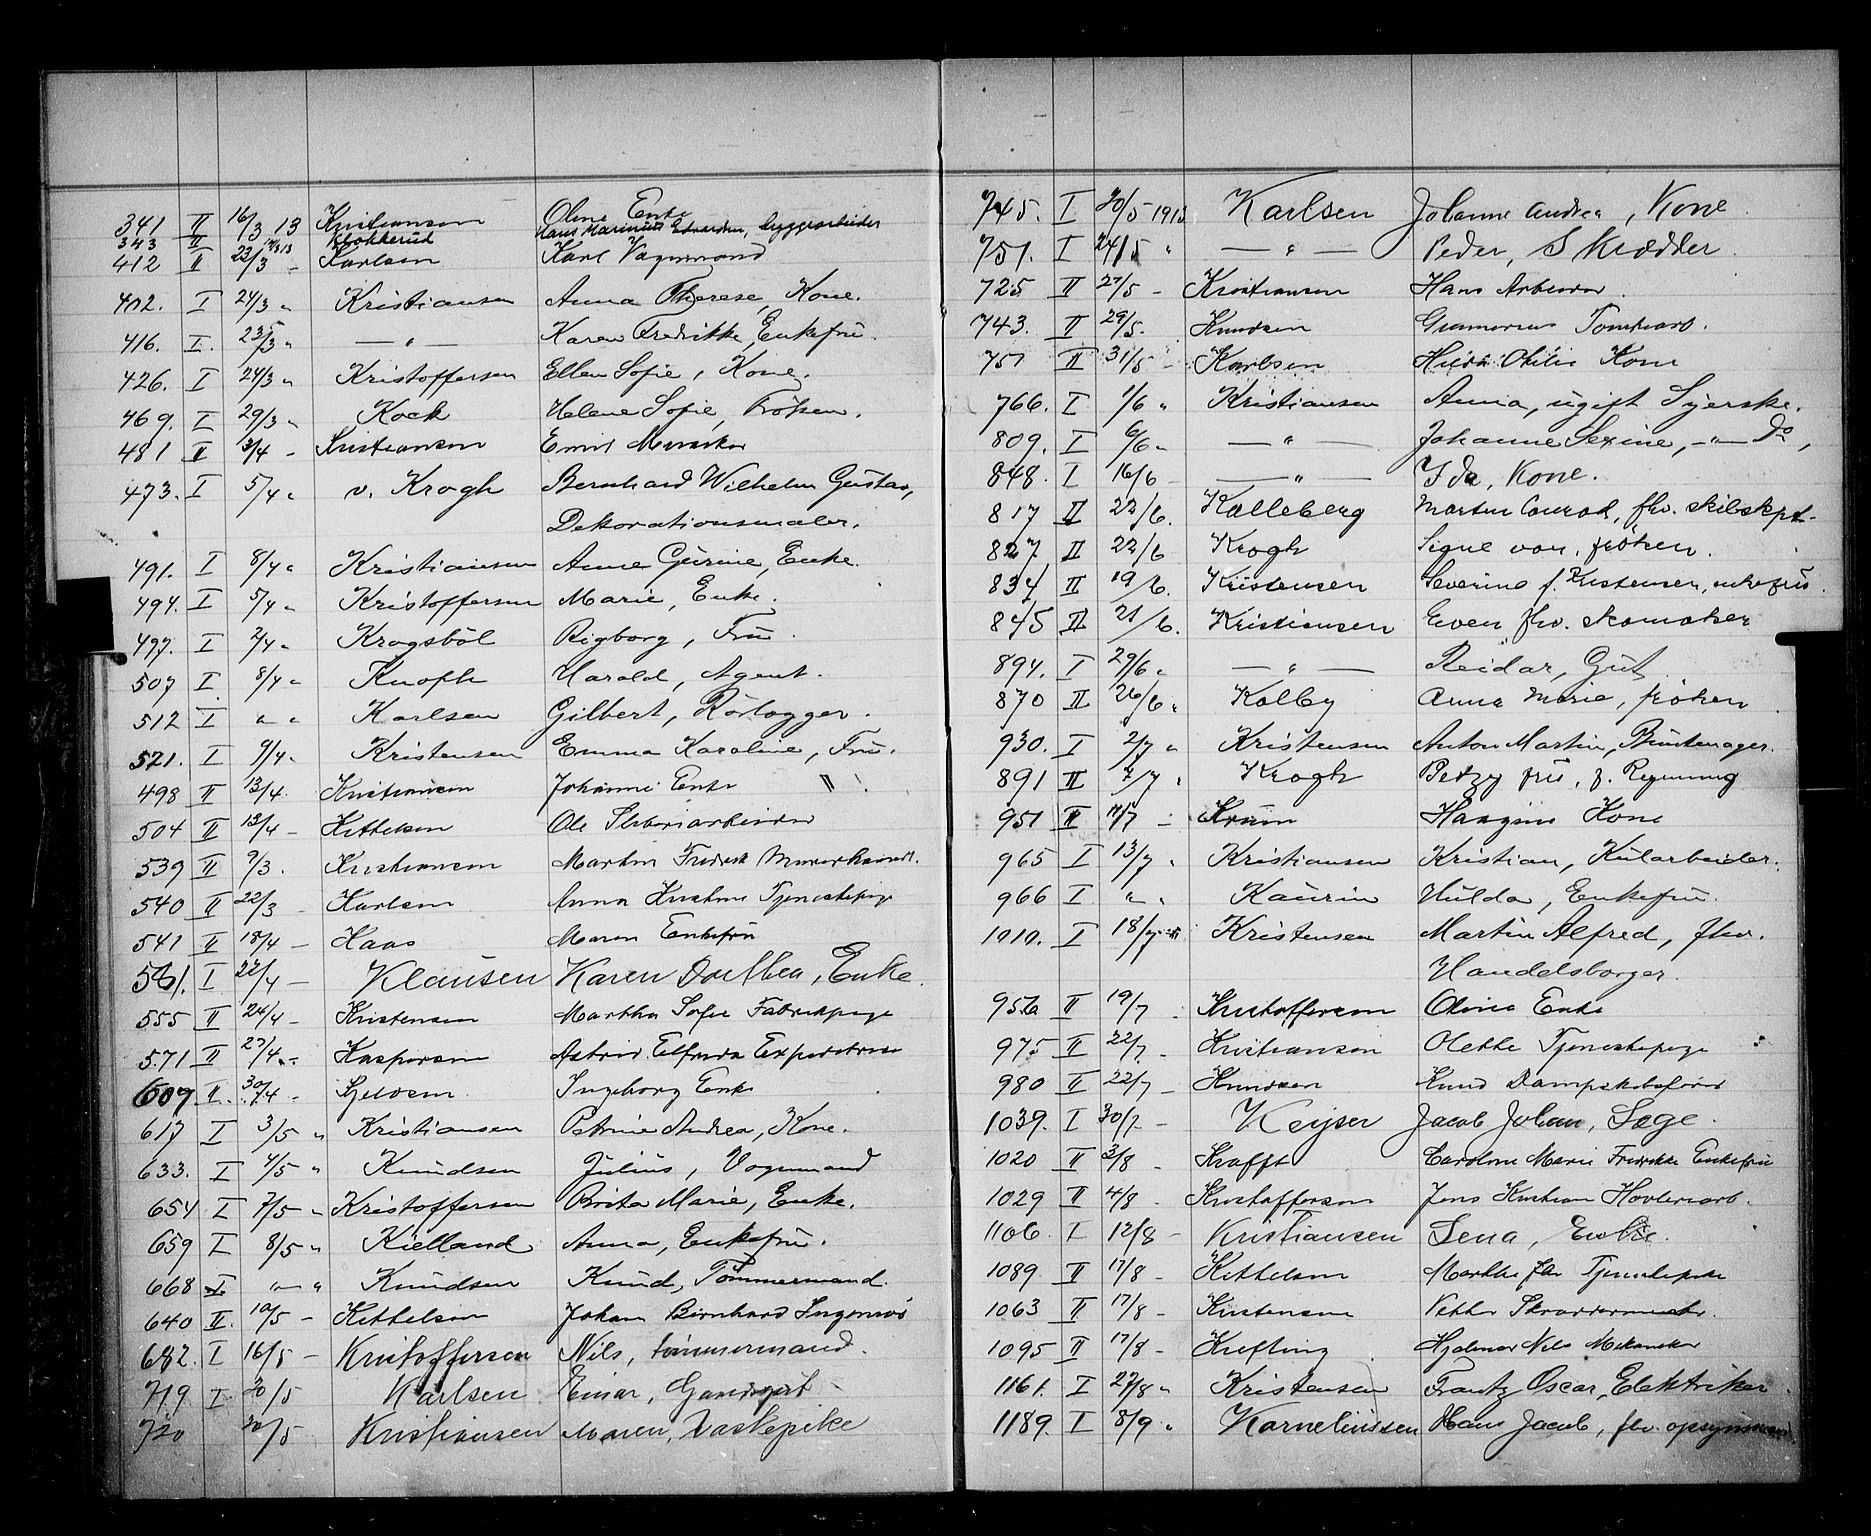 341 II 16/3 13 Kristiansen Oline Enke
343 II 14/3 13 Klokkerud Hans Marinius Edvardsen, bryggearbeider
412 II 23/3 - Karlsen Karl Vognmand
402. I 24/3 " Kristiansen Anna Therese, Kone.
416. I. 23/3 " — " — Karen Fredrikke, Enkefru.
426. I 24/3 " Kristoffersen Ellen Sofie, Kone.
469. I 29/3 " Kock Helene Sofie, Frøken.
481 II 3/4 - Kristiansen Emil Musiker
473. I 5/4 " v. Krogh Bernhard Wilhelm Gustav,
Dekorationsmaler.
491. I 8/4 " Kristiansen Anne Gurine, Enke.
494. I 5/4 " Kristoffersen Marie, Enke.
497. I 2/4 " Krogsböl Rigborg, Fru.
507 I 8/4 " Knoph Harald, Agent.
512 I " " Karlsen Gilbert, Rørlægger.
521. I 9/4 " Kristensen Emma Karoline, Fru.
498 II 13/4. Kristiansen Johanne Enke
504 II 13/4 - Kittelsen Ole Støberiarbeider
539 II 9/3. Kristiansen Martin Fredrik Murerhaandt.
540 II 22/3 - Karlsen Anna Kristine Tjenestepige
541 II 18/4 - Kaas Maren Enkefru
561. I 22/4 - Klausen Karen Dorthea, Enke.
555 II 24/4 - Kristensen Martha Sofie Fabrikpige
571 II 27/4 - Kaspersen Astrid Elfrida Expeditrise
609 II 30/4 - Ingeborg Enke
617 I 3/5 " Kristiansen Petrine Andrea, Kone.
633. I 4/5 " Knudsen Julius, Vognmand
654 I 7/5 " Kristoffersen Berte Marie, Enke.
659 I 8/5 " Kielland Anna, Enkefru.
668 I " " Knudsen Knud, Tømmermand.
640 II. 10/5 - Kittelsen Johan Bernhard Ingeniør
682. I 16/5 - Kristoffersen Nils, tømmermand.
719. I 20/5 Karlsen Einar, Gaardsgut
720 20/5 Kristiansen Maren, Vaskepike
745. I 20/5 1913 Karlsen Johanne Andrea, Kone
751. I 24/5 " — " — Peder, Skrædder.
725 II 27/5 - Kristiansen Hans Arbeider.
743. II 29/5. Knudsen Gunnerius Tomtearb.
751 II 31/5 - Karlsen Hulda Otilie Kone
766. I 1/6 " Kristiansen Anna, ugift Syerske.
809. I 6/6 " — " — Johanne Sexine, — " — Do,
848. I 16/6 — " — Ida, Kone.
817 II 22/6. Kalleberg Martin Conrad, fhv. skibskpt.
827 II 22/6 Krogh Signe von, frøken.
834 II 19/6. Kristensen Severine f. Kristensen, enkefru.
845 II 21/6. Kristiansen Even fhv. skomaker
894. I 29/6 " — " — Reidar, Gut
870 II 26/6 " Kolby Anna Marie, frøken
930. I 2/7 " Kristensen Anton Martin, Buntmager.
891 II 7/7 " Krogh Betzy fru, f. Rynning
951 II 11/7 - Krüm Kone
965 I 13/7 " Kristiansen Kristian, Kularbeider.
966 I " " Kaurin Hulda, Enkefru.
1010. I 18/7 Kristensen Martin Alfred, fhv.
Handelsborger.
956 II 19/7 Kristoffersen Oline Enke
975 II 22/7 - Kristiansen Olette Tjenestepige
980 II 22/7 - Knudsen Knud Dampskibsfører
1039. I 30/7 - Keyser Jacob Johan, Læge.
1020 II 3/8 - Krafft Caroline Marie Fredrikke Enkefru
1029 II 4/8 - Kristoffersen Jens Kristian Høvleriarb.
1106. I 12/8 - Kristiansen Lena,
1089. II 17/8 - Kittelsen Marthe fhv Tjenestepike
1063 II 17/8 - Kristensen Petter Skræddermester.
1095 II 17/8 - Krefting Hjalmar Nils Mekaniker
1161. I 27/8 " Kristensen Frantz Oscar, Elektriker.
1189. I 8/9 " Korneliussen Hans Jacob, fhv. opsynsmand.